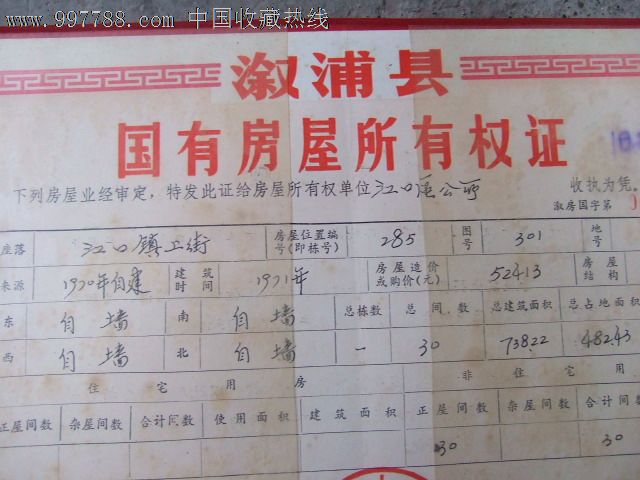 www.997788.com 中国收藏热线
溆浦县
国有房屋所有权证
下列房屋业经审定，特发此证给房屋所有权单位江口区公所 收执为凭。
溆房国字第
座落 江口镇上街 房屋位置编号(即栋号) 285 图号 301 地号
来源 1970年自建 建筑时间 1971年 房屋造价或购价(元) 52413 房屋结构
东 自墙 南 自墙 总栋数 总间数 总建筑面积 总占地面积
西 自墙 北 自墙 一 30 738.22 482.43
住宅用房 非住宅用
正屋间数 杂屋间数 合计间数 使用面积 建筑面积 正屋间数 杂屋间数 合计间数
30 30